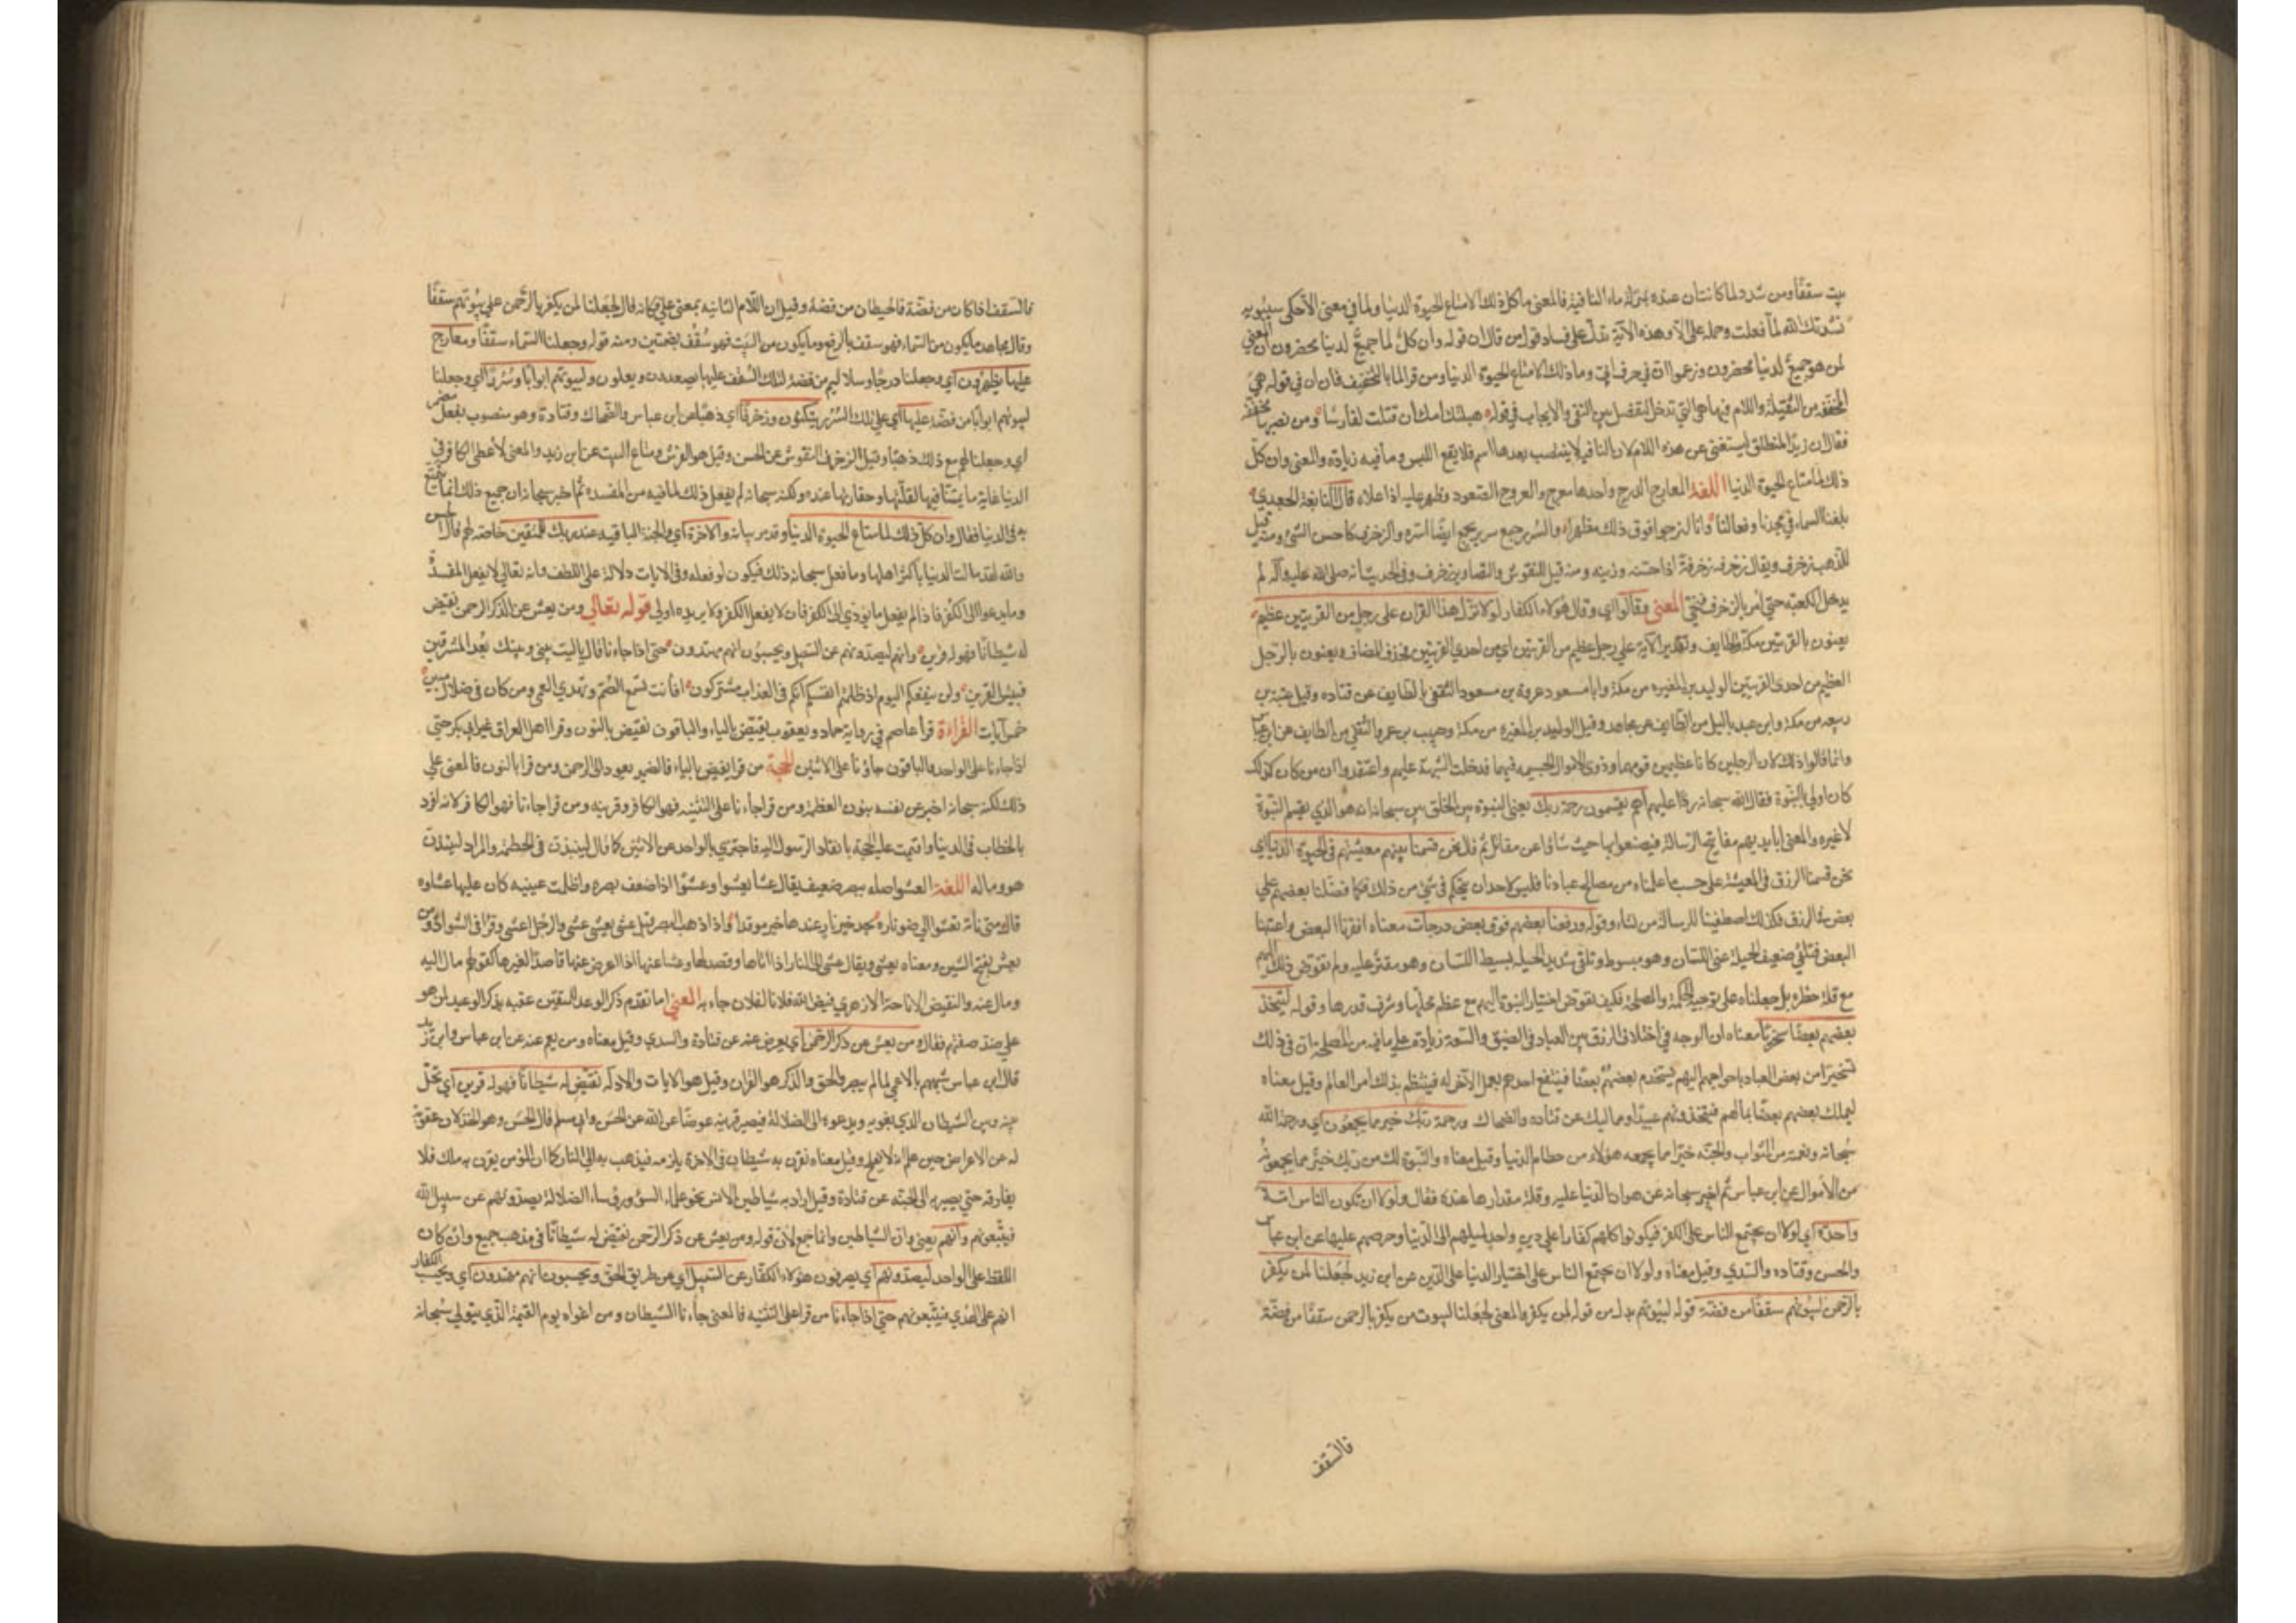 بيت سقفا ومن شدد لما كانت ان عنده بمنزلة ماء النافية فالمعنى ما كل ذلك الا متاع الحيوة الدنيا ولما في معنى الا حكى سيبويه
نشدتك الله لما فعلت وحمله على الا وهذه الآية تدل على فساد قول من قال ان قوله وان كل لما جميع لدينا محضرون ان المعنى
لمن هو جميع لدينا محضرون وزعموا ان في حرف ابي وما ذلك الا متاع الحيوة الدنيا ومن قرا لما بالتخفيف فان ان في قوله هي
المخففة من الثقيلة واللام فيها هي التي تدخل لتفصل بين النفي والايجاب في قوله هبلتك امك ان قتلت لفارسا ومن نصب بها مخففة
فقال ان زيدا لمنطلق استغنى عن هذه اللام لان النافية لا ينتصب بعدها اسم فلا يقع اللبس وما فيه زيادة والمعنى وان كل
ذلك لمتاع الحيوة الدنيا اللغة المعارج الدرج واحدها معرج والعروج الصعود وظهر عليه اذا علاه قال النابغة الجعدي
بلغنا السماء في مجدنا وفعالنا وانا لنرجوا فوق ذلك مظهرا والسرر جمع سرير يجمع ايضا اسرة والزخرف كما حسن الشئ ومنه قيل
للذهب زخرف ويقال زخرفه زخرفة اذا حسنه وزينه ومنه قيل للنقوش والتصاوير زخرف وفي الحديث انه صلى الله عليه وآله لم
يدخل الكعبة حتى امر بالزخرف فنحي المعنى وقالوا اي وقال هؤلاء الكفار لولا نزل هذا القران على رجل من القريتين عظيم
يعنون بالقريتين مكة والطايف وتقدير الآية على رجل عظيم من القريتين اي من احدى القريتين فحذف المضاف ويعنون بالرجل
العظيم من احدى القريتين الوليد بن المغيره من مكة وابا مسعود عروة بن مسعود الثقفي بالطايف عن قتاده وقيل عتبة بن
ربيعه من مكة وابن عبد ياليل من الطايف عن مجاهد وقيل الوليد بن المغيره من مكة وحبيب بن عمرو الثقفي من الطايف عن ابن عباس
وانما قالوا ذلك لان الرجلين كانا عظيمين قومهما وذوي الاموال الجسيمه فيهما فدخلت الشبهة عليهم واعتقدوا ان من كان كذلك
كان اولى بالنبوة فقال الله سبحانه ردا عليهم اهم يقسمون رحمة ربك يعني النبوة بين الخلق بين سبحانه انه هو الذي يقسم النبوة
لا غيره والمعنى ابايديهم مفاتيح الرسالة فيضعونها حيث شاؤا عن مقاتل ثم قال نحن قسمنا بينهم معيشتهم في الحيوة الدنيا اي
نحن قسمنا الرزق في المعيشة على حسب ما علمناه من مصالح عبادنا فليس لاحد ان يتحكم في شئ من ذلك فكما فضلنا بعضهم على
بعض في الرزق فكذلك اصطفينا للرسالة من نشاء وقوله ورفعنا بعضهم فوق بعض درجات معناه افقرنا البعض واغنينا
البعض فتلقى ضعيف الحيلة عيي اللسان وهو مبسوط وتلقى شديد الحيلة بسيط اللسان وهو مقتر عليه ولم نفوض ذلك اليهم
مع قلة خطره بل جعلناه على توجيه الحكمة والمصلحة فكيف نفوض اختيار النبوة اليهم مع عظم محلها وشرف قدرها وقوله ليتخذ
بعضهم بعضا سخريا معناه ان الوجه في اختلاف الرزق بين العباد في الضيق والسعة زيادة على ما فيه من المصلحة ان في ذلك
تسخيرا من بعض العباد باحواجهم اليهم يستخدم بعضهم بعضا فينتفع احدهم بعمل الآخر له فينتظم بذلك امر العالم وقيل معناه
ليملك بعضهم بعضا بمالهم فيتخذونهم عبيدا ومماليك عن قتاده والضحاك ورحمة ربك خير مما يجمعون اي ورحمة الله
سبحانه ونعمته من الثواب والجنة خير مما يجمعه هؤلاء من حطام الدنيا وقيل معناه والنبوة لك من ربك خير مما يجمعونه
من الاموال عن ابن عباس ثم اخبر سبحانه عن هوان الدنيا عليه وقلة مقدارها عنده فقال ولولا ان تكون الناس امة
واحدة اي لولا ان يجتمع الناس على الكفر فيكونوا كلهم كفارا على دين واحد لميلهم الى الدنيا وحرصهم عليها عن ابن عباس
والحسن وقتاده والسدي وقيل معناه ولولا ان يجتمع الناس على اختيار الدنيا على الدين عن ابن زيد لجعلنا لمن يكفر
بالرحمن لبيوتهم سقفا من فضة قوله لبيوتهم بدل من قوله لمن يكفر والمعنى لجعلنا لبيوت من يكفر بالرحمن سقفا من فضة
فالسقف
فالسقف اذا كان من فضة فالحيطان من فضة وقيل ان اللام الثانية بمعنى على فكانه قال لجعلنا لمن يكفر بالرحمن على بيوتهم سقفا
وقال مجاهد ما يكون من السماء فهو سقف بالرفع وما يكون من البيت فهو سقف بضمتين ومنه قوله وجعلنا السماء سقفا ومعارج
عليها يظهرون اي وجعلنا درجا وسلاليم من فضة لتلك السقف عليها يصعدون ويعلون ولبيوتهم ابوابا وسررا اي وجعلنا
لبيوتهم ابوابا من فضة عليها اي على تلك السرر يتكئون وزخرفا اي ذهبا عن ابن عباس والضحاك وقتادة وهو منصوب بفعل مضمر
اي وجعلنا لهم مع ذلك ذهبا وقيل الزخرف النقوش عن الحسن وقيل هو الفرش ومتاع البيت عن ابن زيد والمعنى لأعطى الكافر في
الدنيا غاية ما يتمناه فيها لقلتها وحقارتها عنده ولكنه سبحانه لم يفعل ذلك لما فيه من المفسدة ثم اخبر سبحانه ان جميع ذلك انما يتمتع
به في الدنيا فقال وان كل ذلك لما متاع الحيوة الدنيا وقد مر بيانه والاخرة اي والجنة الباقيه عند ربك للمتقين خاصة لهم قال الحسن
والله لقد مالت الدنيا باكثر اهلها وما فعل سبحانه ذلك فكيف لو فعله وفي الايات دلالة على اللطف وانه تعالى لا يفعل المفسدة
وما يدعو الى الكفر فاذا لم يفعل ما يؤدي الى الكفر فان لا يفعل الكفر ولا يريده اولى قوله تعالى ومن يعش عن ذكر الرحمن نقيض
له شيطانا فهو له قرين وانهم ليصدونهم عن السبيل ويحسبون انهم مهتدون حتى اذا جاءنا قال يا ليت بيني وبينك بعد المشرقين
فبئس القرين ولن ينفعكم اليوم اذ ظلمتم انفسكم انكم في العذاب مشتركون افانت تسمع الصم وتهدي العمي ومن كان في ضلال مبين
خمس آيات القراءة قرأ عاصم في رواية حماد ويعقوب يقيض بالياء والباقون نقيض بالنون وقرا اهل العراق غير ابي بكر حتى
اذا جاءنا على الواحد والباقون جاؤنا على الاثنين الحجة من قرا يقيض بالياء فالضمير يعود الى الرحمن ومن قرا بالنون فالمعنى على
ذلك لكنه سبحانه اخبر عن نفسه بنون العظمة ومن قراجاءانا على التثنية فهو الكافر وقرينه ومن قرا جاءنا فهو الكافر لانه افرد
بالخطاب في الدنيا واقيمت عليه الحجة بانفاذ الرسول اليه فاجتزي بالواحد عن الاثنين كما قال لينبذن في الحطمة والمراد لينبذان
هو وماله اللغة العشو اصله ببصر ضعيف يقال عشا يعشوا وعشوا اذا ضعف بصره واظلمت عينيه كان عليها غشاوه
قال متى تأته تعشوا الى ضو ناره تجد خير نار عندها خير موقد واذا ذهب البصر قيل عشى يعشى عشى والرجل اعشى وقرا في الشواذ ومن
يعش بفتح الشين ومعناه يعشى ويقال عشى الى النار اذا اتاها وقصد لها وعشا عنها اذا اعرض عنها قاصدا لغيرها كقولهم مال اليه
ومال عنه والتقيض الاتاحة الازهري قيض الله فلانا لفلان جاء به المعنى لما تقدم ذكر الوعد للمتقين عقبه بذكر الوعيد لمن هو
على ضد صفتهم فقال ومن يعش عن ذكر الرحمن اي يعرض عنه عن قتادة والسدي وقيل معناه ومن يعم عنه عن ابن عباس وابن زيد
قال ابن عباس شبههم بالاعمى لما لم يبصروا الحق والذكر هو القران وقيل هو الايات والادلة نقيض له شيطانا فهو له قرين اي نخل
بينه وبين الشيطان الذي يغويه ويدعوه الى الضلالة فيصير قرينه عوضا عن ذكر الله عن الحسن وابي مسلم قال الحسن وهو الخذلان عقوبة
له عن الاعراض حين علم انه لا يفلح وقيل معناه نقرن به شيطان في الاخرة يلزمه فيذهب به الى النار كما ان المؤمن يقرن به ملك فلا
يفارقه حتى يصير به الى الجنة عن قتادة وقيل اراد به شياطين الانس نحو علماء السوء ورؤساء الضلالة يصدونهم عن سبيل الله
فيتبعونهم وانهم يعني وان الشياطين وانما جمع لان قوله ومن يعش عن ذكر الرحمن نقيض له شيطانا في مذهب جميع وان كان
اللفظ على الواحد ليصدونهم اي يصرفون هؤلاء الكفار عن السبيل اي عن طريق الحق ويحسبون انهم مهتدون اي ويحسب الكفار
انهم على الهدى فيتبعونهم حتى اذا جاءنا من قرا على التثنية فالمعنى جاءنا الشيطان ومن اغواه يوم القيمة الذي يتولى سبحانه